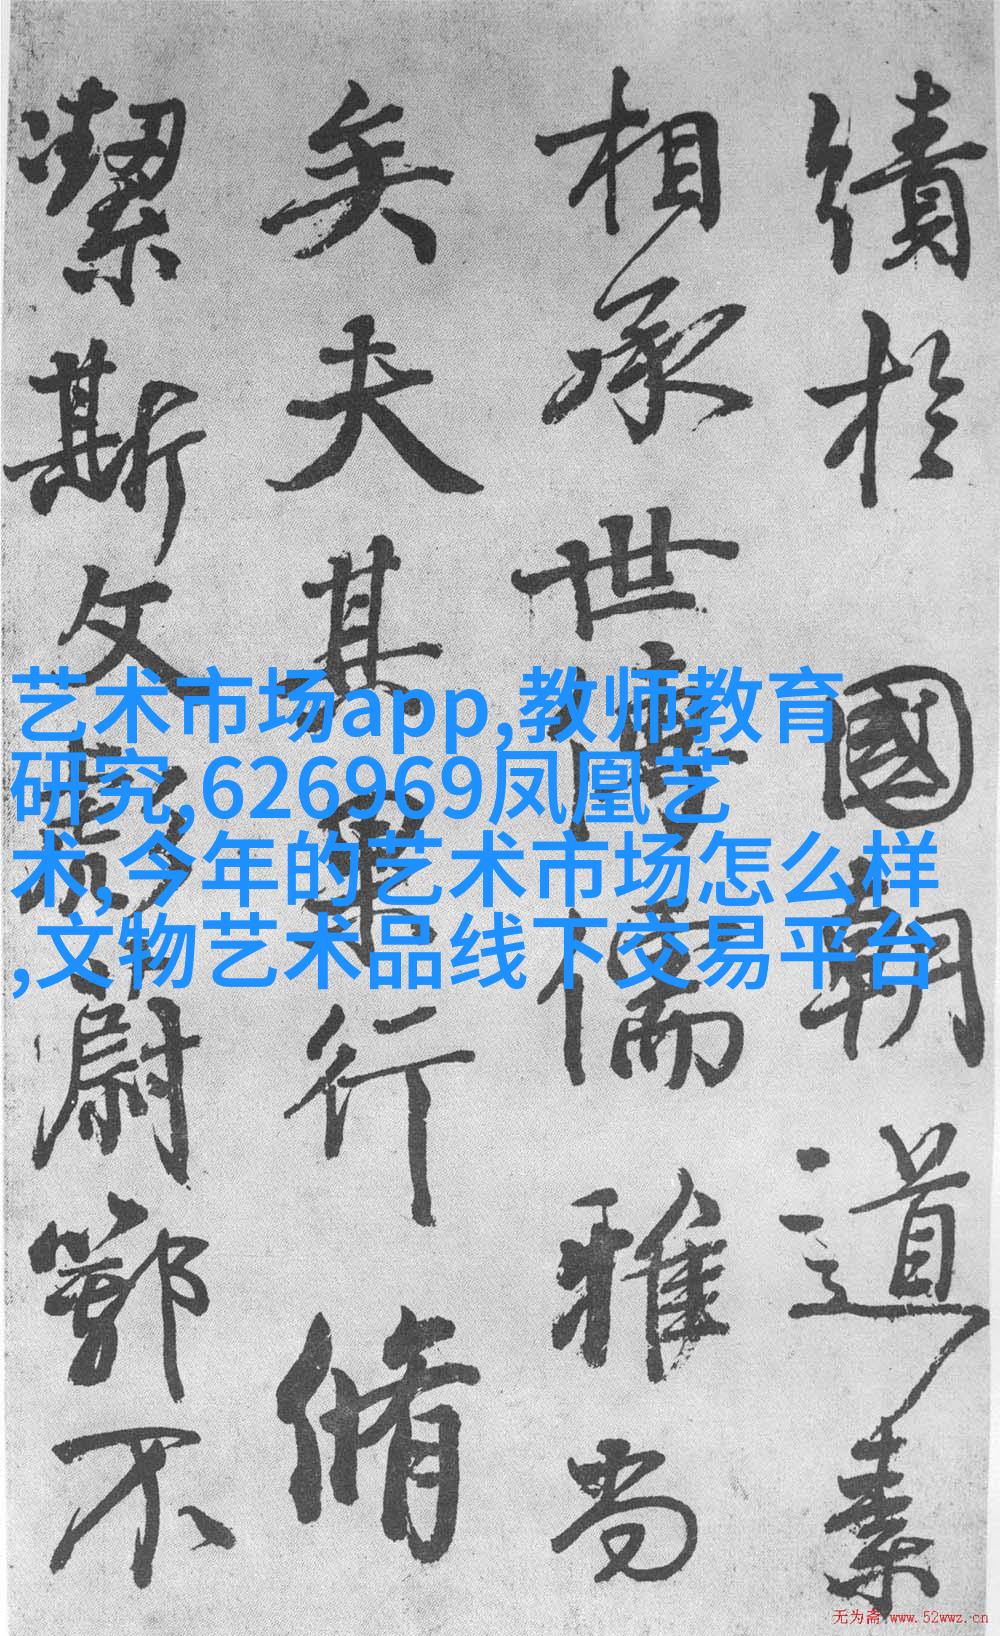 績於國朝道素
相承世傳儒雅尚
矣夫其果行脩
潔斯文彪蔚鄂不
艺术市场app,教师教育
研究,626969凤凰艺
术,今年的艺术市场怎么样
,文物艺术品线下交易平台
无为斋 www.52wwz.cn